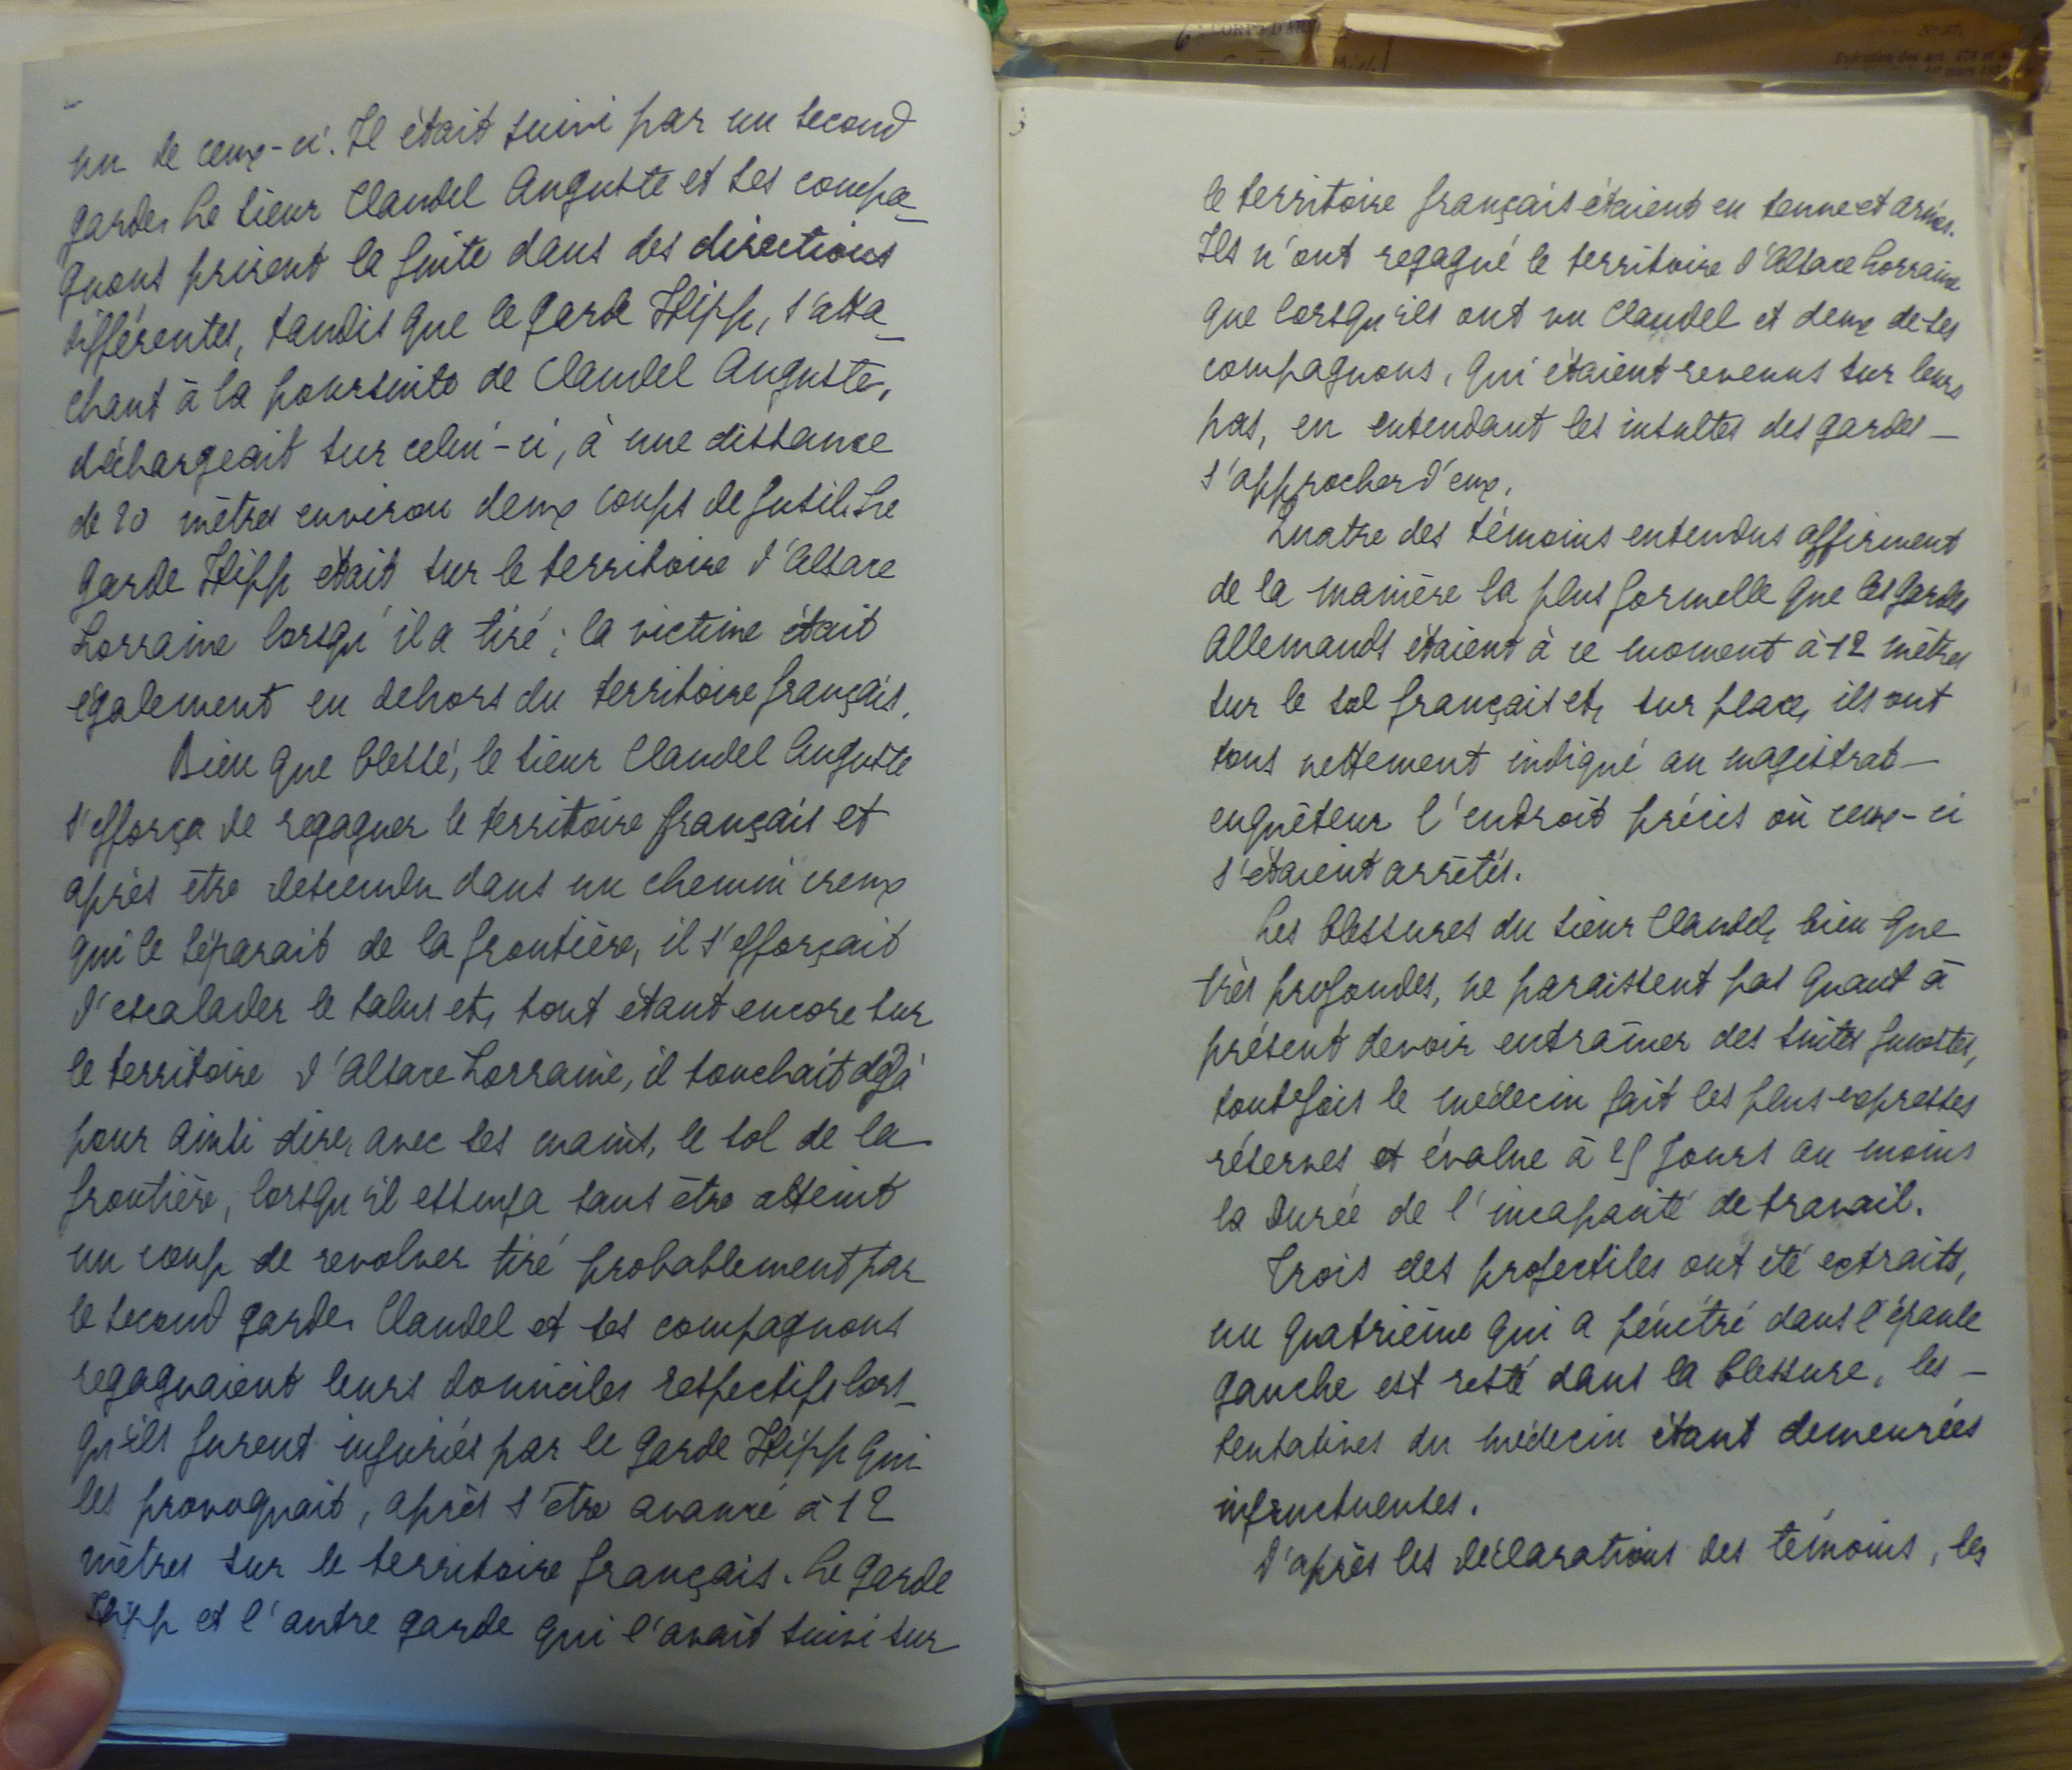 un de ceux-ci. Il était suivi par un second
garde. Le sieur Claudel Auguste et ses compa-
gnons prirent la fuite dans des directions
différentes, tandis que le garde Hipp, s'atta-
chant à la poursuite de Claudel Auguste,
déchargeait sur celui-ci, à une distance
de 20 mètres environ deux coups de fusil. Le
garde Hipp était sur le territoire d'Alsace
Lorraine lorsqu'il a tiré ; la victime était
également en dehors du territoire français.
Bien que blessé, le sieur Claudel Auguste
s'efforça de regagner le territoire français et
après être descendu dans un chemin creux
qui le séparait de la frontière, il s'efforçait
d'escalader le talus et, tout étant encore sur
le territoire d'Alsace Lorraine, il touchait déjà
pour ainsi dire, avec ses mains, le sol de la
frontière, lorsqu'il essuya sans être atteint
un coup de revolver tiré probablement par
le second garde. Claudel et ses compagnons
regagnaient leurs domiciles respectifs lors-
qu'ils furent injuriés par le garde Hipp qui
les provoquait, après s'être avancé à 12
mètres sur le territoire français. Le garde
Hipp et l'autre garde qui l'avait suivi sur
3
le territoire français étaient en tenue et armés.
Ils n'ont regagné le territoire d'Alsace Lorraine
que lorsqu'ils ont vu Claudel et deux de ses
compagnons, qui étaient revenus sur leurs
pas, en entendant les insultes des gardes -
s'approcher d'eux.
Quatre des témoins entendus affirment
de la manière la plus formelle que les gardes
Allemands étaient à ce moment à 12 mètres
sur le sol français et, sur place, ils ont
tous nettement indiqué au magistrat -
enquêteur l'endroit précis où ceux-ci
s'étaient arrêtés.
Les blessures du sieur Claudel, bien que
très profondes, ne paraissent pas quant à
présent devoir entraîner des suites funestes,
toutefois le médecin fait les plus expresses
réserves et évalue à 25 jours au moins
la durée de l'incapacité de travail.
Trois des projectiles ont été extraits,
un quatrième qui a pénétré dans l'épaule
gauche est resté dans la blessure, les -
tentatives du médecin étant demeurées
infructueuses.
D'après les déclarations des témoins, les